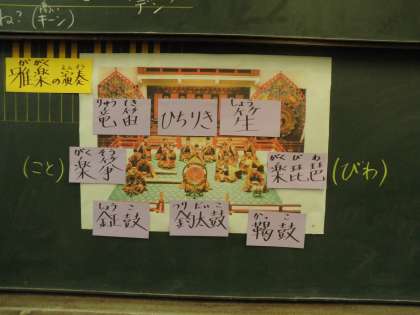 ね?(キーン)
デン
ががく えんそう
雅楽の演奏
りゅうてき
竜笛
ひちりき
しょう
笙
(こと)
がくそう
楽箏
がくびわ
楽琵琶
(びわ)
しょうこ
鉦鼓
つりだいこ
釣太鼓
かっこ
鞨鼓